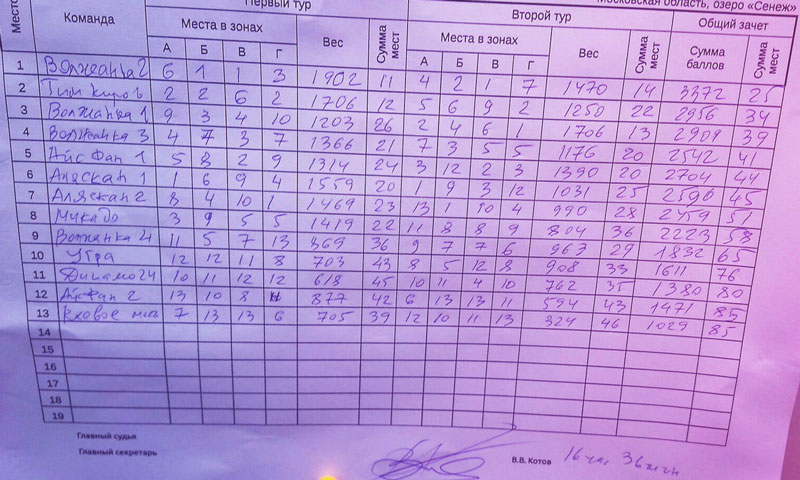 Московская область, озеро «Сенеж»
Место Команда Первый тур Второй тур Общий зачет
Места в зонах Вес Сумма мест Места в зонах Вес Сумма мест Сумма баллов Сумма мест
А Б В Г А Б В Г
1 Волжанка 2 6 1 1 3 1902 11 4 2 1 7 1470 14 3372 25
2 Тим Киров 2 2 6 2 1706 12 5 6 9 2 1250 22 2956 34
3 Волжанка 1 9 3 4 10 1203 26 2 4 6 1 1706 13 2909 39
4 Волжанка 3 4 7 3 7 1366 21 7 3 5 5 1176 20 2542 41
5 Айс Фан 1 5 8 2 9 1314 24 3 12 2 3 1390 20 2704 44
6 Аляскан 1 1 6 9 4 1559 20 1 9 3 12 1031 25 2590 45
7 Аляскан 2 8 4 10 1 1469 23 13 1 10 4 990 28 2459 51
8 Микадо 3 9 5 5 1419 22 11 8 8 9 804 36 2223 58
9 Волжанка 4 11 5 7 13 869 36 9 7 7 6 963 29 1832 65
10 Угра 12 12 11 8 703 43 8 5 12 8 908 33 1611 76
11 Динамо 24 10 11 12 12 618 45 10 11 4 10 762 35 1380 80
12 Айсфан 2 13 10 8 877 42 6 13 13 11 594 43 1471 85
13 7 13 13 6 705 39 12 10 11 13 324 46 1029 85
14
15
16
17
18
19
Главный судья
Главный секретарь В.В. Котов 16 час. 36 мин